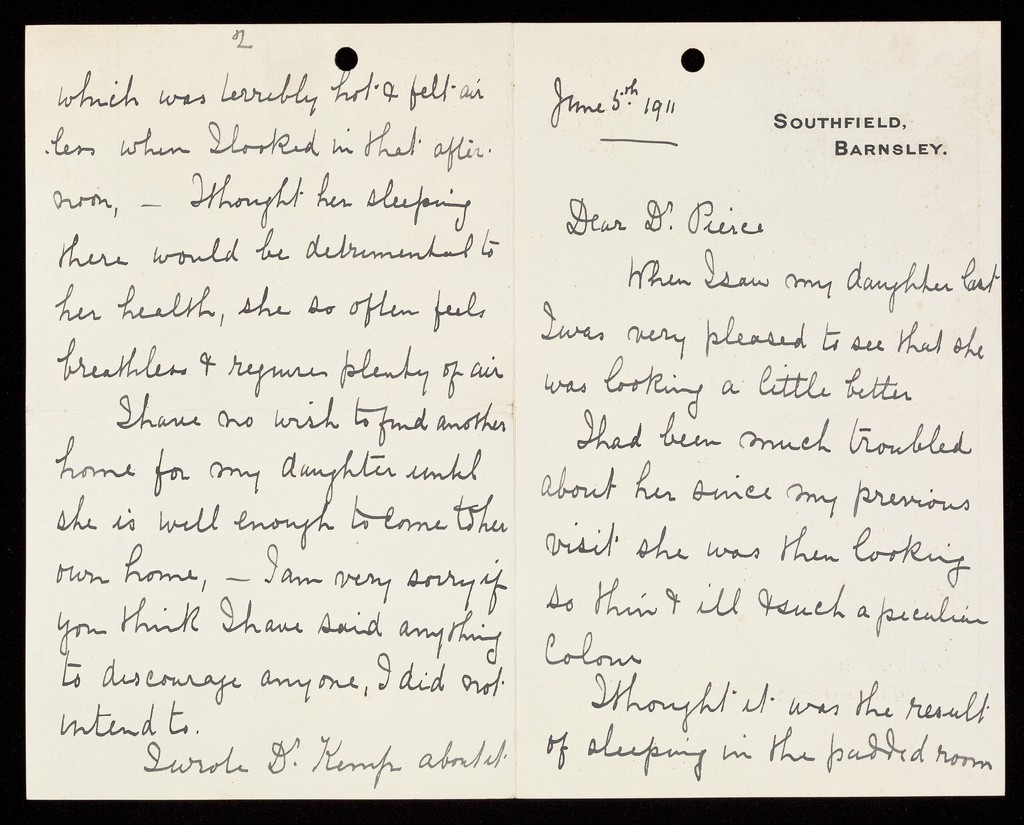 June 5th 1911
SOUTHFIELD,
BARNSLEY.
Dear Dr. Pierce
When I saw my daughter last
I was very pleased to see that she
was looking a little better
I had been much troubled
about her since my previous
visit she was then looking
so thin & ill & such a peculiar
Colour
I thought it was the result
of sleeping in the padded room
2
which was terribly hot & felt air
less when I looked in that after-
noon, — I thought her sleeping
there would be detrimental to
her health, she so often feels
breathless & requires plenty of air
I have no wish to find another
home for my daughter until
she is well enough to come to her
own home, — I am very sorry if
you think I have said anything
to discourage anyone, I did not
intend to.
I wrote Dr. Kemp about it